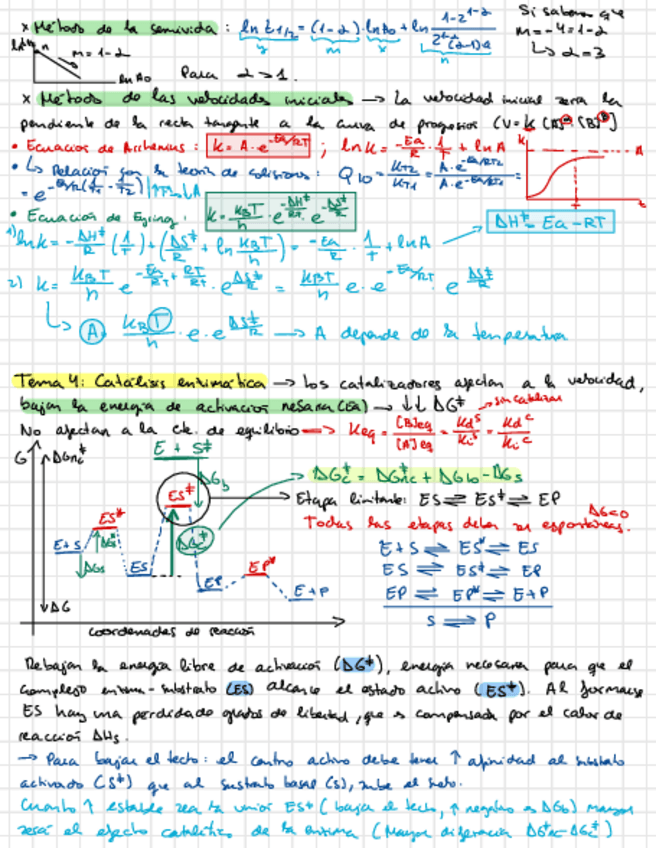 x Método de la semivida : ln t1/2 = (1-α) ln A0 + ln (1-2^(1-α))
y m x n
Si sabemos que
m = -4 = 1-α
↳ α = 3
m = 1-α
ln A0
Para α > 1.
x Método de las velocidades iniciales → La velocidad inicial sería la
pendiente de la recta tangente a la curva de progresión (V = k [A] [B])
• Ecuación de Arrhenius : k = A·e^(-Ea/RT) ; ln k = -Ea/R · 1/T + ln A
• ↳ Relación con la teoría de colisiones : Q10 = kT2/kT1 = A·e^(-Ea/RT2) / A·e^(-Ea/RT1) =
• Ecuación de Eyring: k = kBT/h · e^(-ΔH‡/RT) · e^(-ΔS‡/R)
ΔH‡ = Ea - RT
1) ln k = -ΔH‡/R (1/T) + (ΔS‡/R + ln kBT/h) = -Ea/R · 1/T + ln A
2) k = kBT/h e^(-Ea/RT + RT/RT) · e^(ΔS‡/R) = kBT/h e · e^(-Ea/RT) · e^(ΔS‡/R)
↳ A = kBT/h · e · e^(ΔS‡/R) → A depende de la temperatura
Tema 4: Catálisis enzimática → Los catalizadores afectan a la velocidad,
bajan la energía de activación necesaria (Ea) → ↓↓ ΔG‡
sin catalizar
No afectan a la cte. de equilibrio → Keq = [B]eq/[A]eq = Kd^s/Ki^s = Kd^c/Ki^c
G ΔGnc‡ E + S‡
ΔGb
ΔGc‡ = ΔGnc‡ + ΔGb - ΔGs
ES‡
Etapa limitante: ES ⇌ ES‡ ⇌ EP
ΔG<0
Todas las etapas deben ser espontáneas.
ES*
E+S
ΔGs
ES
ΔGc‡
EP
EP*
E+P
E+S ⇌ ES* ⇌ ES
ES ⇌ ES‡ ⇌ EP
EP ⇌ EP* ⇌ E+P
S ⇌ P
ΔG
coordenadas de reacción
Rebajan la energía libre de activación (ΔG‡), energía necesaria para que el
complejo enzima-substrato (ES) alcance el estado activo (ES‡). Al formarse
ES hay una perdida de grados de libertad, que es compensada por el calor de
reacción ΔHs.
→ Para bajar el techo : el centro activo debe tener ↑ afinidad al substrato
activado (S‡) que al sustrato basal (s), sube el suelo.
Cuanto ↑ estable sea la unión ES‡ (baja el techo, ↑ negativo es ΔGb) mayor
será el efecto catalítico de la enzima (Mayor diferencia ΔGnc‡ - ΔGc‡)